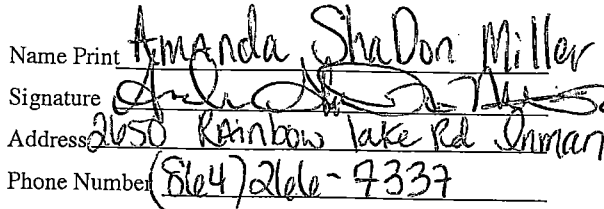 Name Print Amanda ShaDon Miller
Signature
Address 2650 Rainbow Lake Rd Inman
Phone Number (864) 266-7337